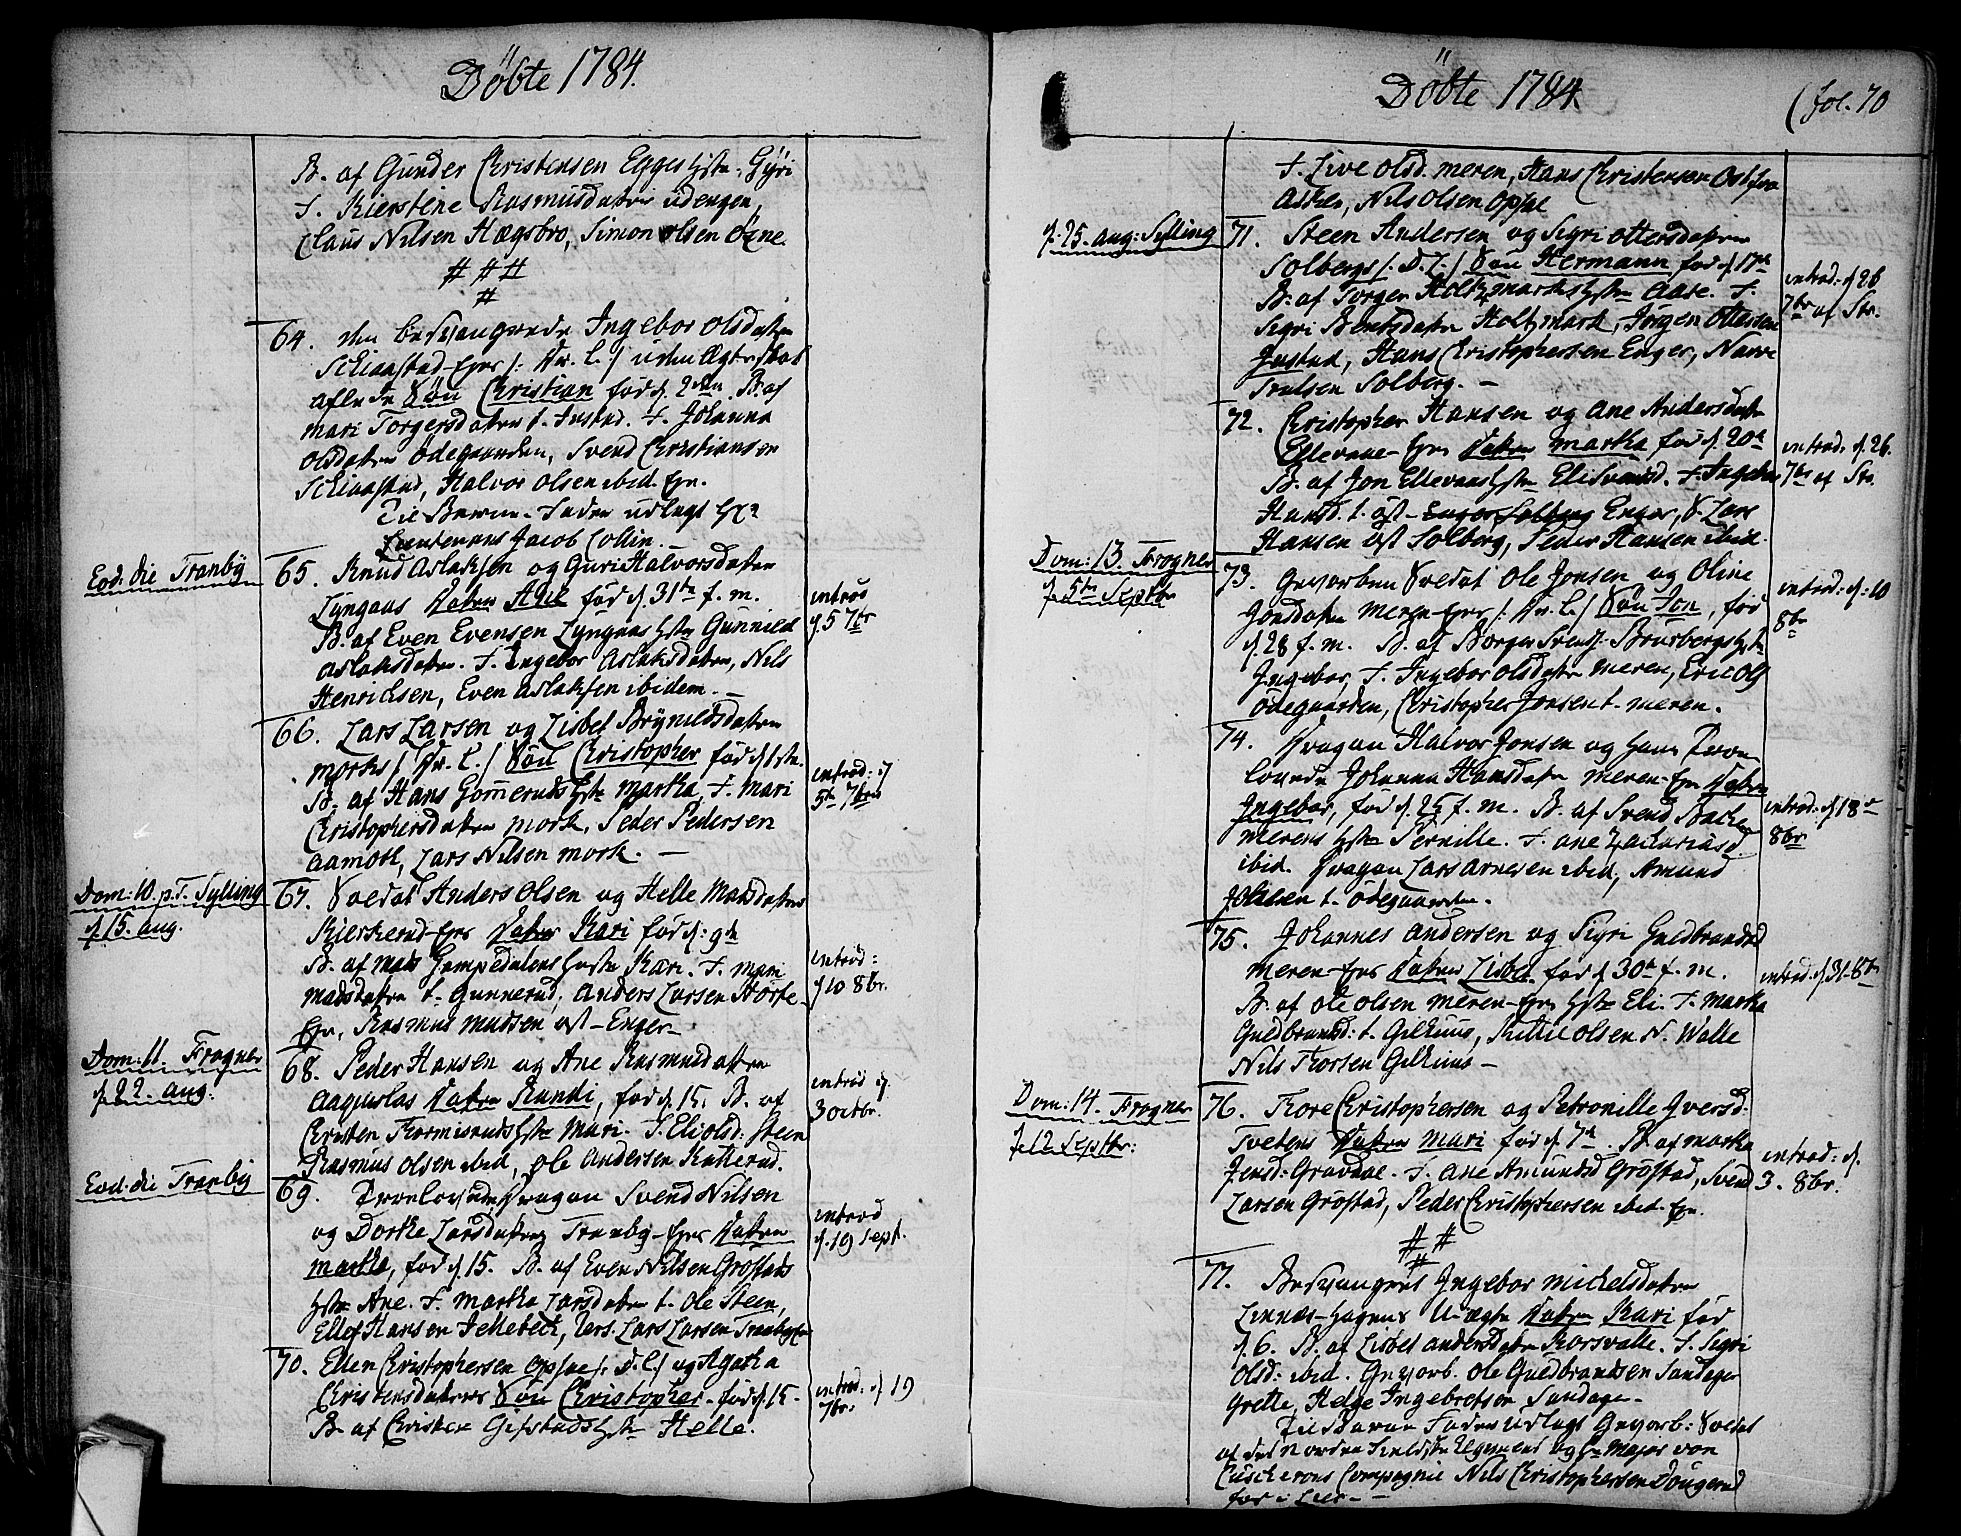 Döbte 1784.
B. af Gunder Christensen Egges hstr: Gÿri
F. Kierstine Rasmusdatter udengen,
Claus Nilsen Hægsbro, Simon olsen Öÿne.
# # #
#
64. den besvangrede Ingebor olsdatter
Schiaastad-Eyer /: Kr. L. / uden Ægteskab
aflede Sön Christian föd d. 2den B. af
Mari Torgersdatter t. Justad. F. Johanna
olsdatter ödegaarden, Svend Christiansen
Schiaastad, Halvor olsen ibid. Eye.
Til Barne-Fader udlagt Hr
Lieutenant Jacob Collin.
Eod. die Tranbÿ
65. Knud Aslaksen og Guri Halvorsdatter
Lyngaas Datter Ane föd d. 31te f. m.
B. af Even Evensen Lyngaas hstr Gunnild
Aslaksdatter. F. Ingebor Aslaksdatter, Nils
Henrichsen, Even Aslaksen ibidem. —
introd
d. 5 7br
66. Lars Larsen og Lisbet Brÿnildsdatter
Morks / Kr. L. / Sön Christopher föd d. 1ste.
B. af Hans Gommeruds hstr Martha, F. Mari
Christophersdatter Mork, Peder Pedersen
Aamoth, Lars Nilsen Mork. —
introd: d
5te 7bris
Dom: 10. p. T. Sylling
d. 15. aug.
67. Soldat Anders Olsen og Helle Madsdatter
Kierkerud-Eyes Datter Kari föd d: 9de
B. af Mads Gompedalens hustr Kari. F. Mari
Madsdatter t. Gunnerud, Anders Larsen Hörte-
Eye, Rasmus Madsen öst-Enger-
introd:
d 10 8br.
Dom: 11. Frogner
d. 22. aug:
68. Peder Hansen og Ane Rasmusdatter
Aagaslas Datter Randi, föd d. 15. B. af
Christen Thormisruds hstr Mari. F. Eli olsd: Steen
Rasmus olsen ibid, ole Andersen Kitterud.
introd d.
3 octbr.
Eod. die Tranbÿ
69. Trolovede Dragon Svend Nilsen
og Dorthe Larsdatters Tranby-Eyes Datter
Martha, föd d. 15. B. af Even Nilsen Gröstads
hstr Ane. F. Martha Larsdatter t. ole Steen,
Ellef Hansen Jellebeck, Lars Larsen Tranbyeye
introd
d. 19 Sept.
70. Ellen Christophersen Opsae /: D. L. / og Agatha
Christensdatters Sön Christopher. föd d. 15-
B. af Christen Gifstads hstr Helle.
introd: d 19
7br.
Döbte 1784.
(fol. 70
F. Live olsd. Meren, Hans Christensen Ost for
Asken, Nils Olsen Opsae
d. 25. aug: Sylling
71. Steen Andersen og Sigri ottersdatter
Solbergs /. D. L. / Sön Hermann föd d. 17de
B. af Torger Holtzmarks hstr Aase. F.
Sigri Bentsdatter Holtzmark, Jörgen Ottersen
Justad, Hans Christophersen Enger, Narve
Trulsen Solberg. —
introd: d 26
7br af Str.
72. Christopher Hansen og Ane Andersdatter
Ellevane-Eyes Datter Martha, föd d. 20de
B. af Jon Ellevaas hstr Eli Svensd. F. Ingebor
Hansd. t. öst- Enger, S. Lars
Hansen öst Solberg, Peder Hansen ibid.
introd: d. 26.
7br af Str.
Dom: 13. Frogner
d. 5te Septbr
73. Gevorben Soldat Ole Jonsen og Oline
Jonsdatter Meren-Eyes /: Kr. L. / Sön Jon, föd
d. 28 f. m. B. af Borger Svends: Brusbergs hstr
Ingebor, F. Ingebor olsdatter Meren, Eric Ols:
ödegaarden, Christopher Jonsen t. Meren.
introd: d: 10
8br
74. Dragon Halvor Jonsen og hans Troe-
lovede Johanna Hansdatter Meren-Eye Datter
Ingebor, föd d. 25 f. m. B. af Svend Bache
Merens hstr Pernille. F. Ane Zachariasd.
ibid. Dragon Lars Arnesen ibid, Amund
Johnsen t. ödegaarden.
introd: d 18de
8br
75. Johannes Andersen og Sigri Guldbrandsd
Meren-Eyes Datter Lisbet. föd d 30te f. m.
B. af ole olsen Meren-Eyes hstr Eli. F. Martha
Guldbrandsd: t. Gilhuus, Kittil olsen N. Walle
Nils Thorsen Gilhuus —
introd. d. 31-8br
Dom: 14. Frogner
d. 12 Septbr:
76. Thore Christophersen og Petronille Iversd.
Tvetens Datter Mari föd d. 7de. B. af Martha
Jensd: Gravdae. F. Ane Amundsd Gröstad, Svend
Larsen Gröstad, Peder Christophersen ibid. Eye.
introd: d.
3. 8br.
# #
#
77. Besvangret Ingebor Mickelsdatter
Linnæs-hagens U-ægte Datter Kari föd
d. 6. B. af Lisbet Andersdatter Thorsvalle. F. Sigri
Olsd: ibid. Gevorb. ole Guldbrandsen Sandager
Grette, Helge Ingebretsen Sandage-
Til Barne Fader udlagt Gevorb: Soldat
af det Norden Fieldske Regiment og Hr Major von
Cuscherons Compagnie Nils Christophersen Dougerud
for i Lier- —